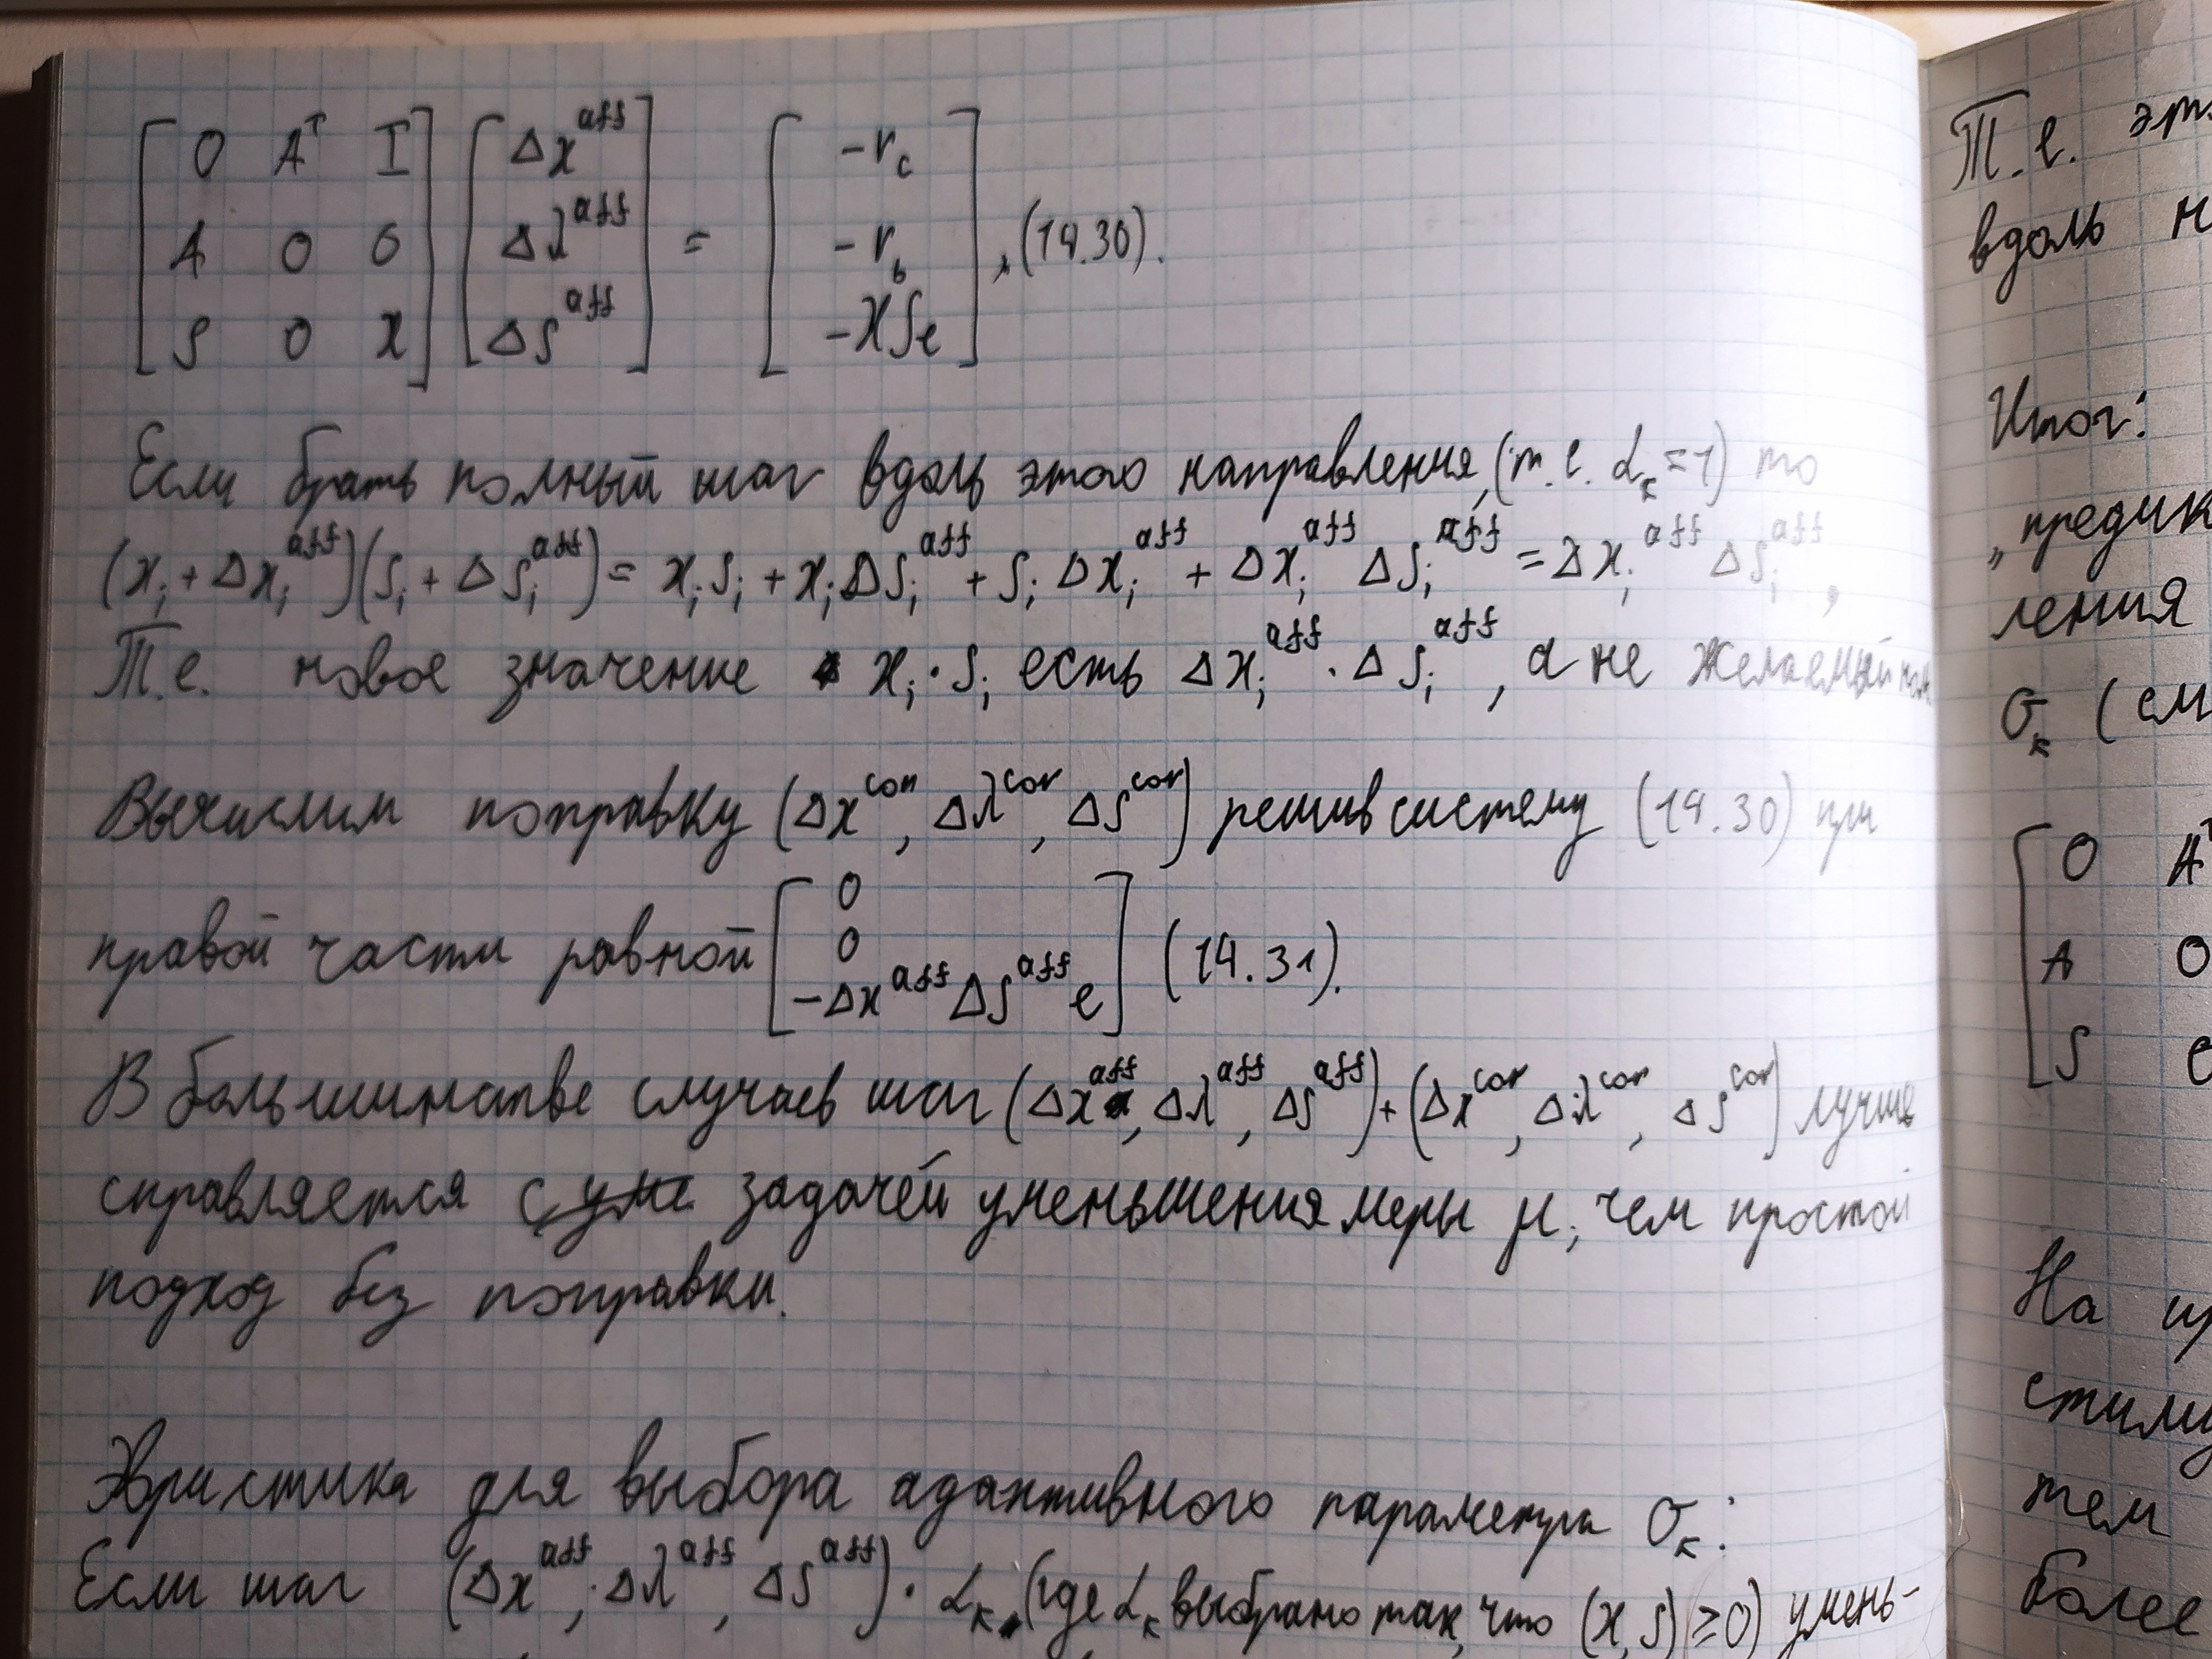 [ 0 Aᵀ I ] [ Δx^aff ] = [ -r_c ]
[ A 0 0 ] [ Δλ^aff ] = [ -r_b ] , (14.30).
[ S 0 X ] [ ΔS^aff ] = [ -XSe ]
Если брать полный шаг вдоль этого направления, (т.е. α_k = 1) то
(x_i + Δx_i^aff)(s_i + Δs_i^aff) = x_i s_i + x_i Δs_i^aff + s_i Δx_i^aff + Δx_i^aff Δs_i^aff = Δx_i^aff Δs_i^aff ,
Т.е. новое значение x_i · s_i есть Δx_i^aff · Δs_i^aff , а не желаемый
Вычислим поправку (Δx^cor, Δλ^cor, Δs^cor) решив систему (14.30) при
правой части равной [ 0
0
-Δx^aff ΔS^aff e ] (14.31).
В большинстве случаев шаг (Δx^aff, Δλ^aff, Δs^aff) + (Δx^cor, Δλ^cor, Δs^cor) лучше
справляется с задачей уменьшения меры μ, чем простой
подход без поправки.
Эвристика для выбора адаптивного параметра σ_k:
Если шаг (Δx^aff, Δλ^aff, Δs^aff) · α_k (где α_k выбрано так, что (x, s) ≥ 0) умень-
Т.е.
вдоль
Итог:
ления
σ_k (
[ 0 Aᵀ
A 0
S
На
тем
более